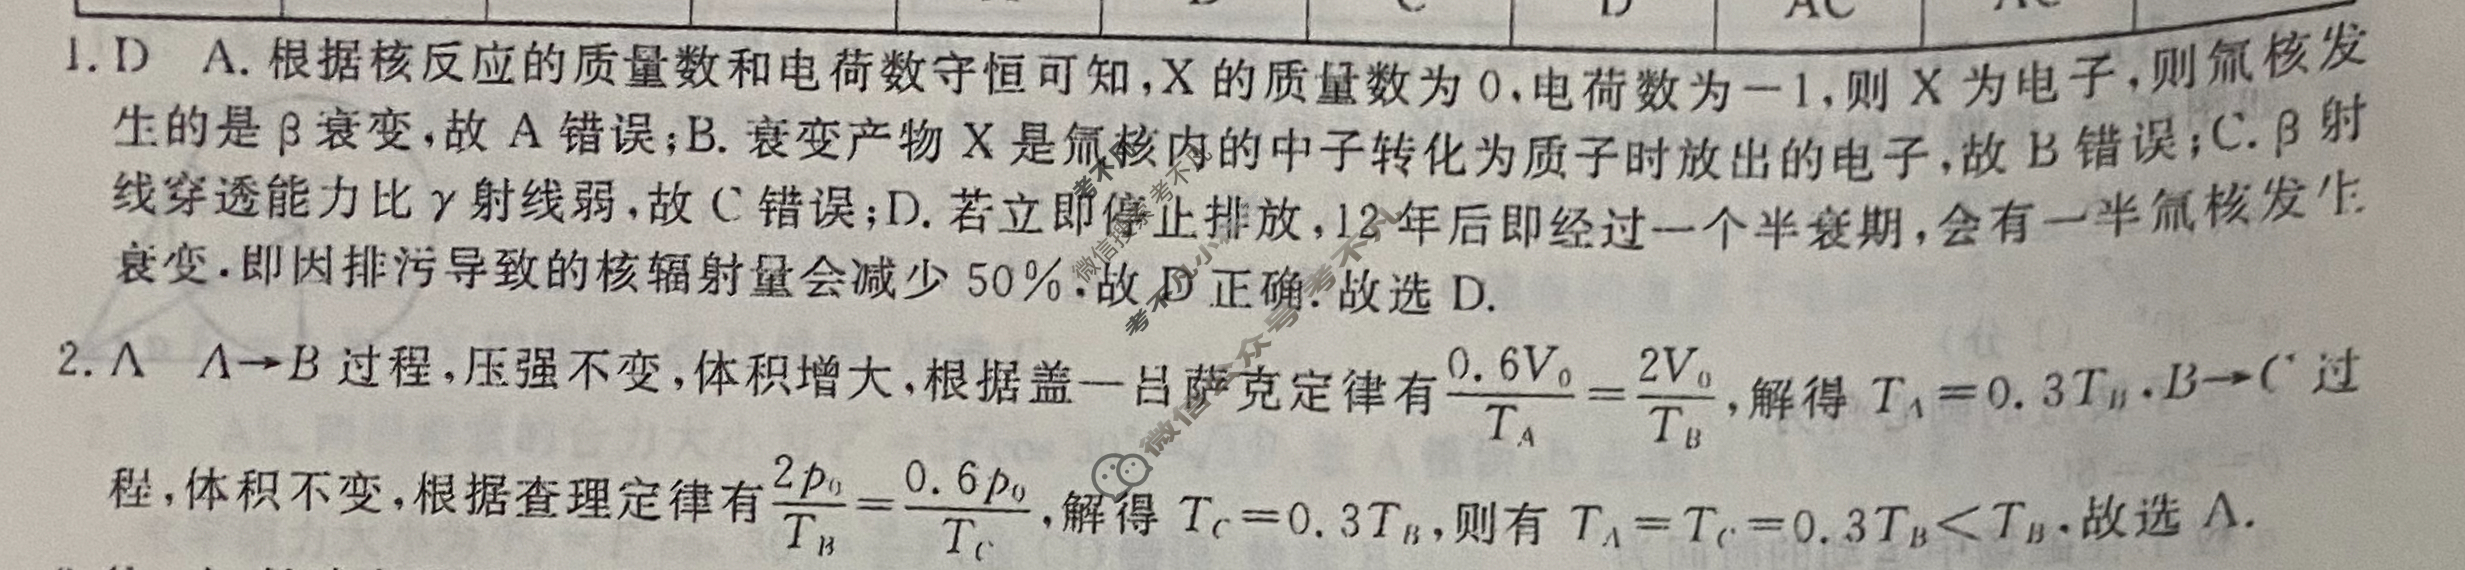 D C D AC AC
1. D A. 根据核反应的质量数和电荷数守恒可知,X 的质量数为 0,电荷数为－1,则 X 为电子,则氚核发
生的是 β 衰变,故 A 错误;B. 衰变产物 X 是氚核内的中子转化为质子时放出的电子,故 B 错误;C. β 射
线穿透能力比 γ 射线弱,故 C 错误;D. 若立即停止排放,12 年后即经过一个半衰期,会有一半氚核发生
衰变.即因排污导致的核辐射量会减少 50%.故 D 正确.故选 D.
2. A A→B 过程,压强不变,体积增大,根据盖一吕萨克定律有 0.6V₀/T_A = 2V₀/T_B,解得 T_A=0.3T_B.B→C 过
程,体积不变,根据查理定律有 2p₀/T_B = 0.6p₀/T_C,解得 T_C=0.3T_B,则有 T_A=T_C=0.3T_B<T_B.故选 A.
微信公众号 考不凡